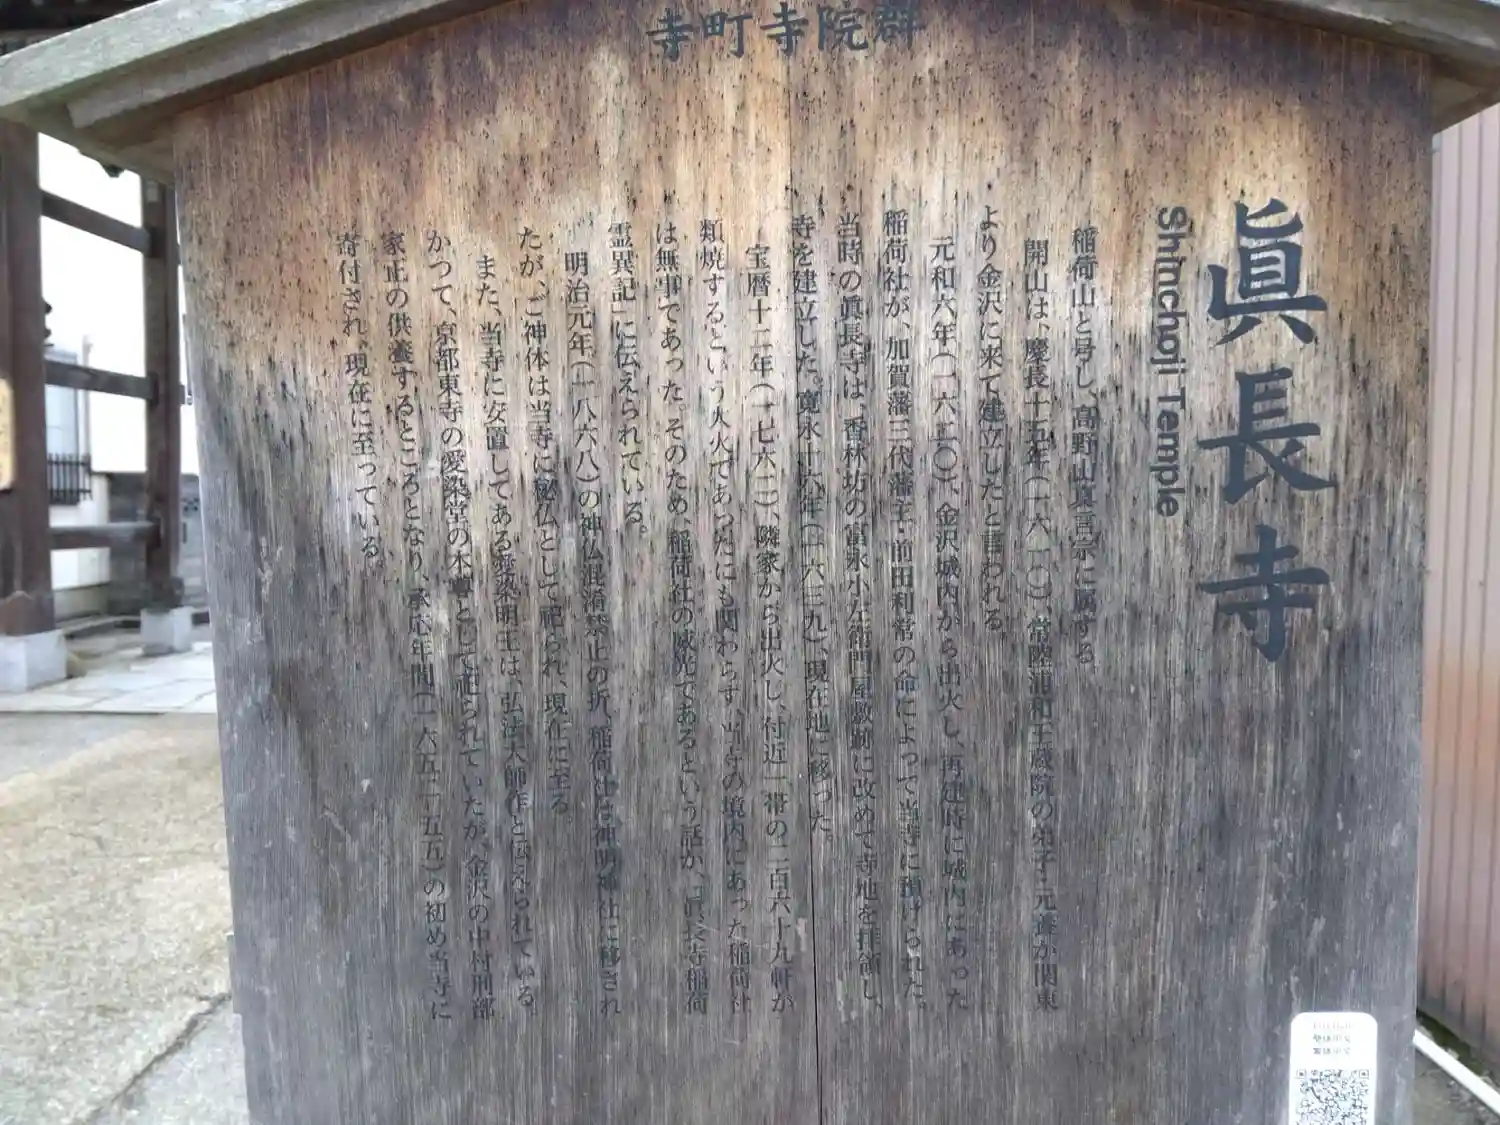 寺町寺院群
眞長寺
Shinchoji Temple
稲荷山と号し、高野山真言宗に属する。
開山は、慶長十五年(一六一〇)、常陸浦和玉蔵院の弟子・元養が関東
より金沢に来て建立したと言われる。
元和六年(一六二〇)、金沢城内から出火し、再建時に城内にあった
稲荷社が、加賀藩三代藩主・前田利常の命によって当寺に預けられた。
当時の眞長寺は、香林坊の富永小左衛門屋敷跡に改めて寺地を拝領し、
寺を建立した。寛永十六年(一六三九)、現在地に移った。
宝暦十二年(一七六二)、隣家から出火し、付近一帯の二百六十九軒が
類焼するという大火であったにも関わらず、当寺の境内にあった稲荷社
は無事であった。そのため、稲荷社の威光であるという話が、「眞長寺稲荷
霊異記」に伝えられている。
明治元年(一八六八)の神仏混淆禁止の折、稲荷社は神明神社に移され
たが、ご神体は当寺に秘仏として祀られ、現在に至る。
また、当寺に安置してある愛染明王は、弘法大師作と伝えられている。
かつて、京都東寺の愛染堂の本尊として祀られていたが、金沢の中村刑部
家正の供養するところとなり、承応年間(一六五二-五五)の初め当寺に
寄付され、現在に至っている。